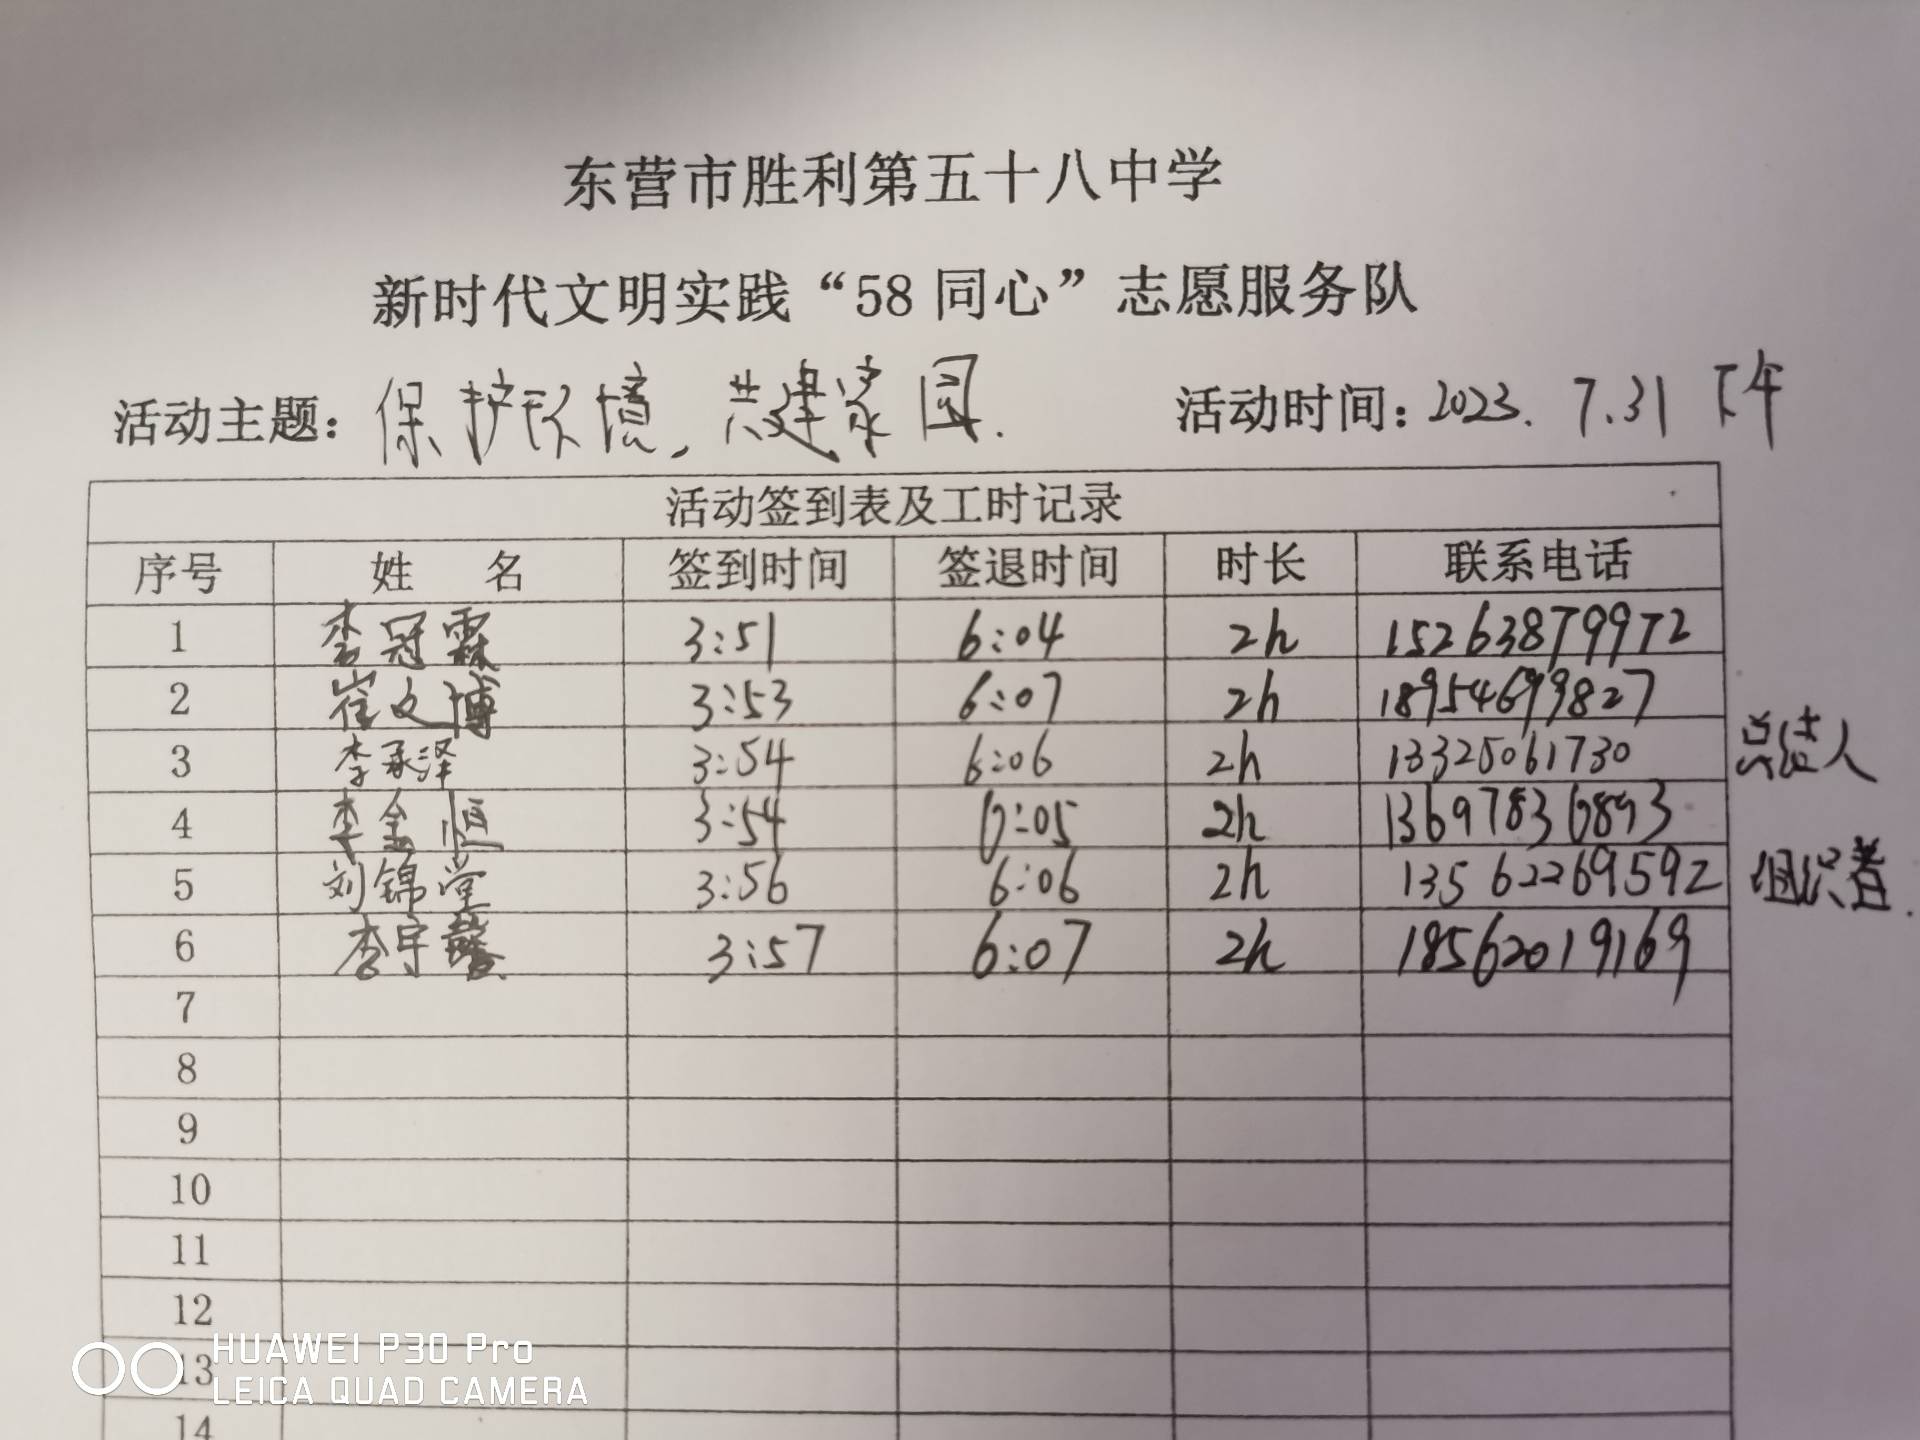 东营市胜利第五十八中学
新时代文明实践“58 同心”志愿服务队
活动主题：保护环境，共建家园. 活动时间：2023. 7.31 下午
活动签到表及工时记录
序号 姓 名 签到时间 签退时间 时长 联系电话
1 李冠霖 3:51 6:04 2h 15263879972
2 崔文博 3:53 6:07 2h 18954699827
3 李承泽 3:54 6:06 2h 13325061730 总结人
4 李金恒 3:54 6:05 2h 13697836893
5 刘锦堂 3:56 6:06 2h 13562269592 组织者.
6 李宇馨 3:57 6:07 2h 18562019169
7
8
9
10
11
12
13
14
HUAWEI P30 Pro
LEICA QUAD CAMERA